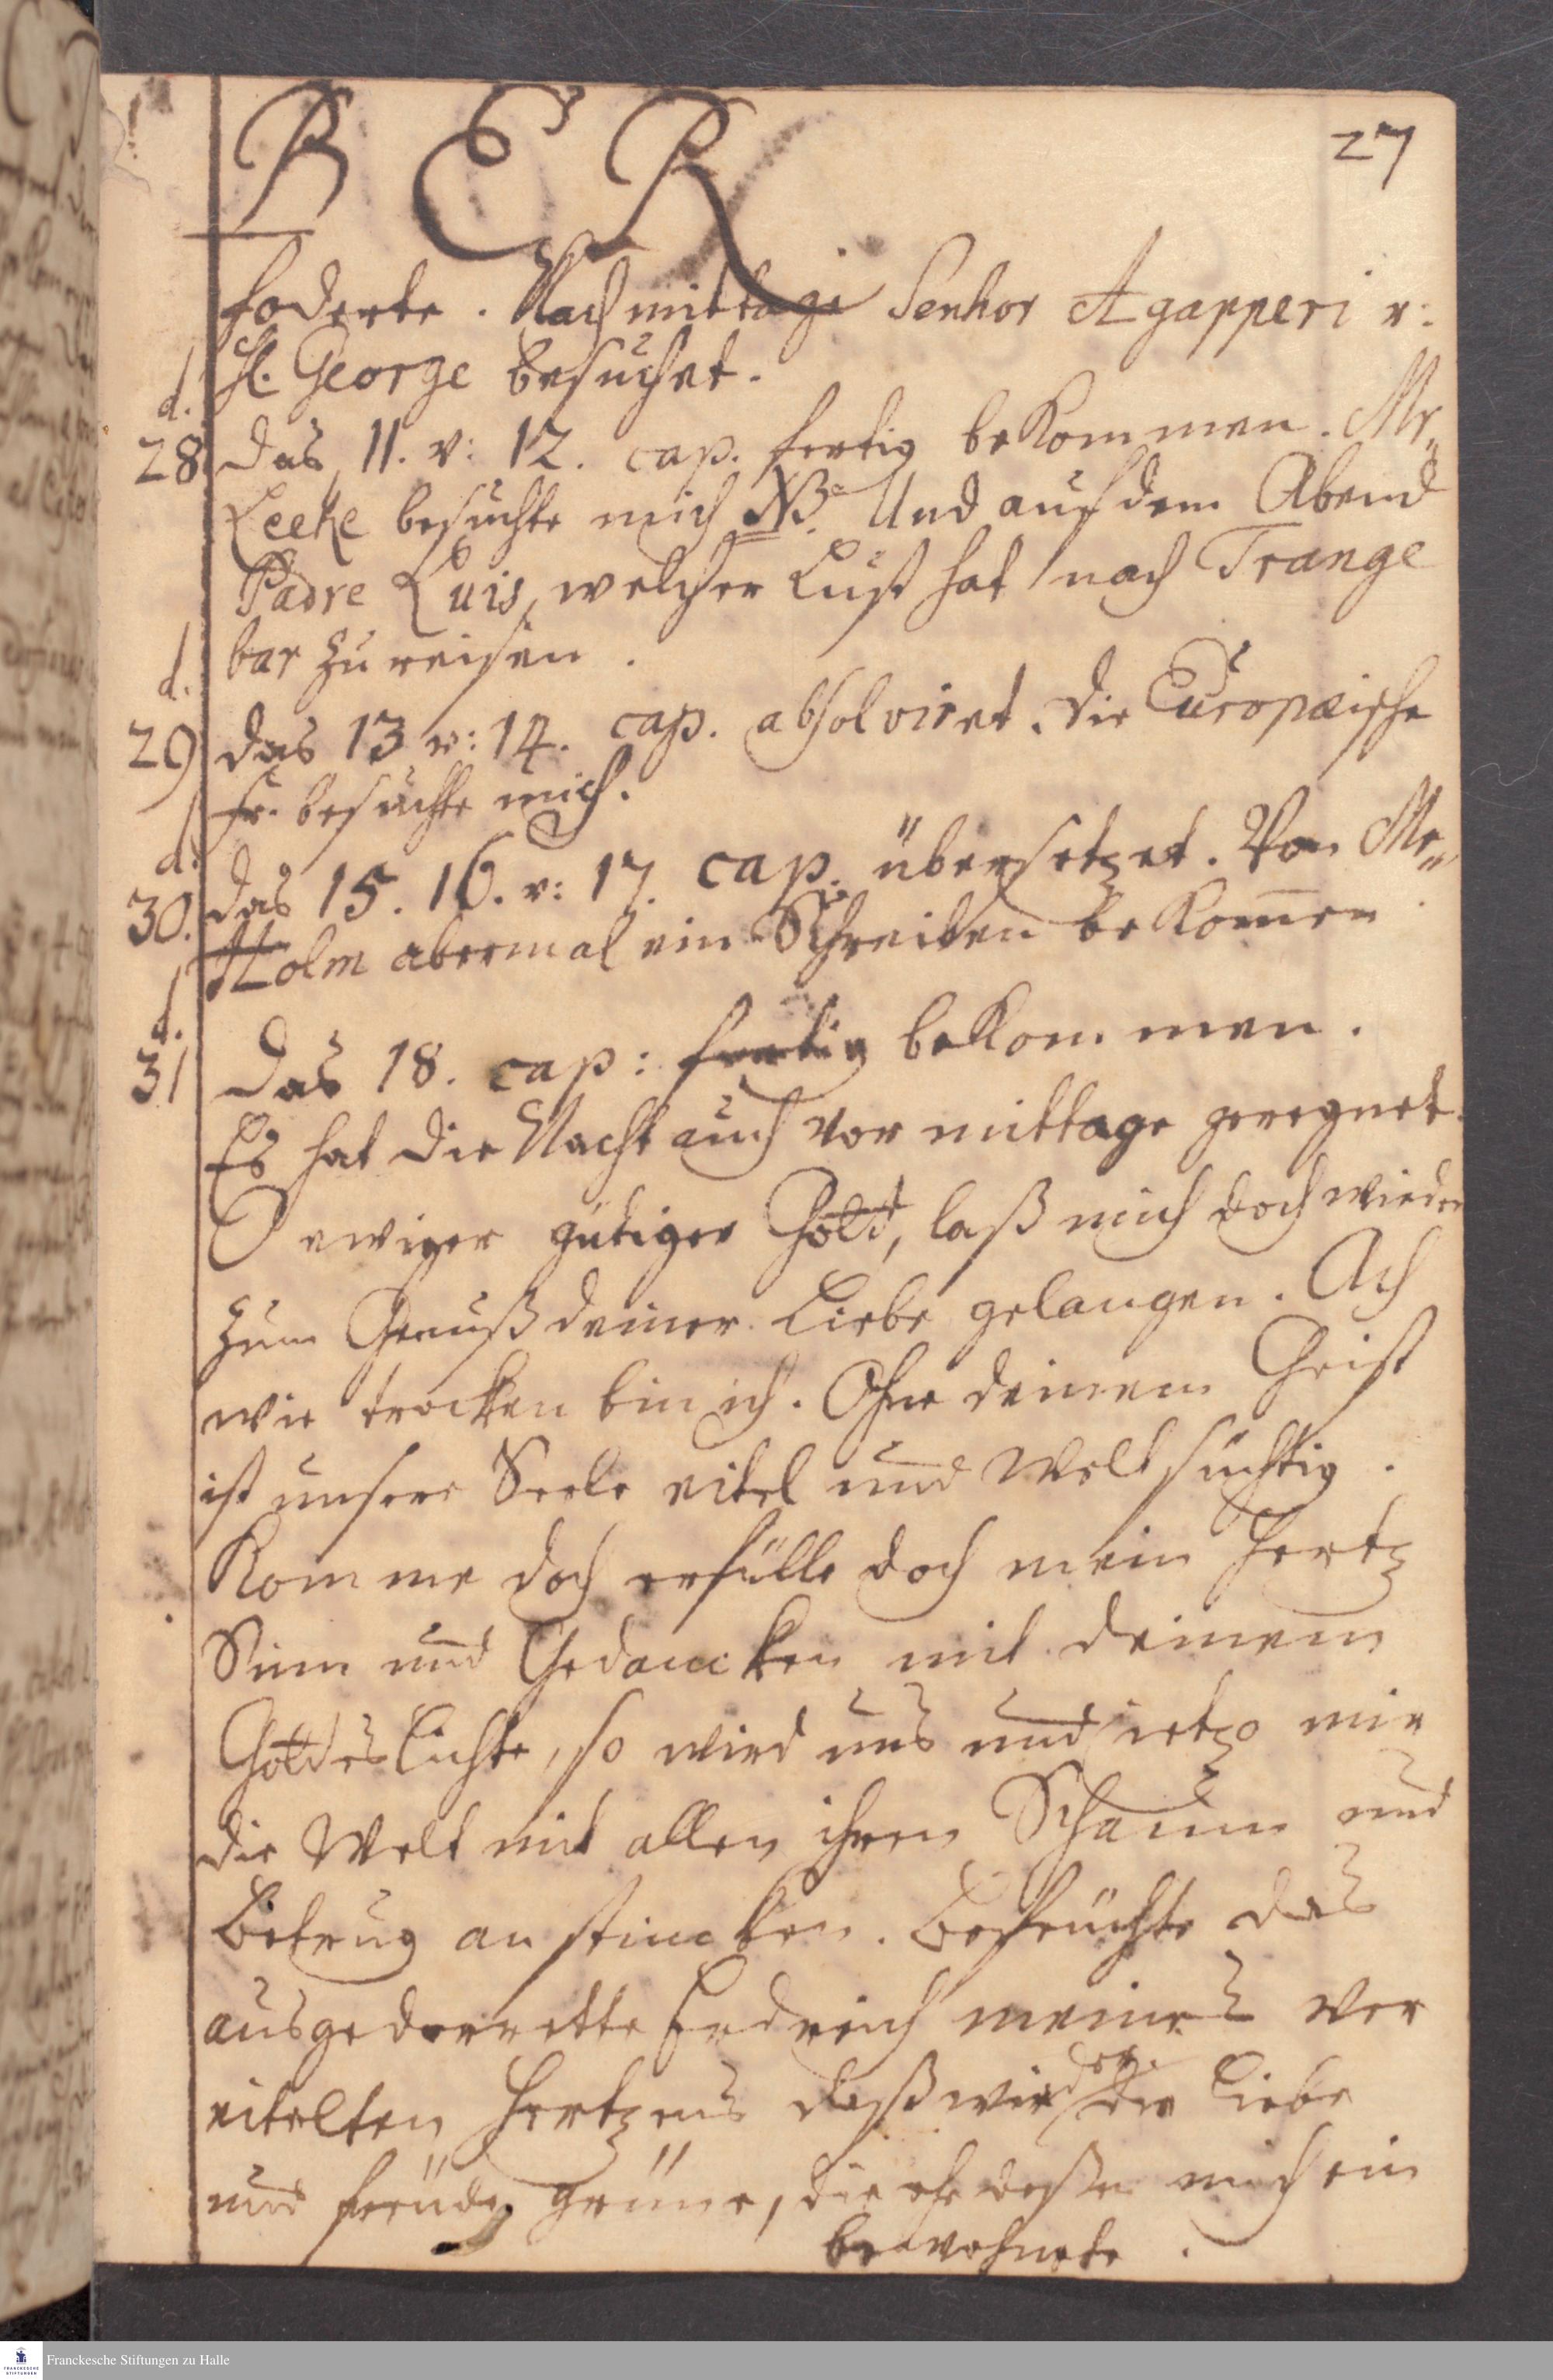 BER
27
foderte. Nachmittage Senhor Agapperi v:
H. George besuchet.
d.
28. Das 11. v: 12. cap. fertig bekommen. Mr.
Leeke besuchte mich NB. Und auf dem Abend
Padre Luis, welcher Lust hat nach Trange
bar zu reisen.
d.
29 das 13 v: 14. cap. absolviret. die Europæische
fr. besuchte mich.
d.
30. das 15. 16. v: 17. cap. übersetzet. Von Mr.
Holm abermal ein Schreiben bekom̄en
d.
31 Das 18. cap: fertig bekommen.
Es hat die Nacht auch vor mittage geregnet.
O ewiger gütiger Gott, laß mich doch wieder
zum Genuß deiner Liebe gelangen. Ach
wie trocken bin ich. Ohne deinem Geist
ist unsere Seele eitel und Weltsüchtig.
Komme doch erfülle doch mein Hertz
Sinn und Gedancken mit deinem
Gottes Lichte, so wird uns und ietzo mir
die Welt mit allen ihren Schaum und
Betrug anstincken. Befeuchte das
ausgedorrette Erdreich meines ver
eitelten Hertzens daß wieder die Liebe
und freude grüne, die ehedeßen mich ein
bewohnete.
Franckesche Stiftungen zu Halle
FRANCKESCHE STIFTUNGEN